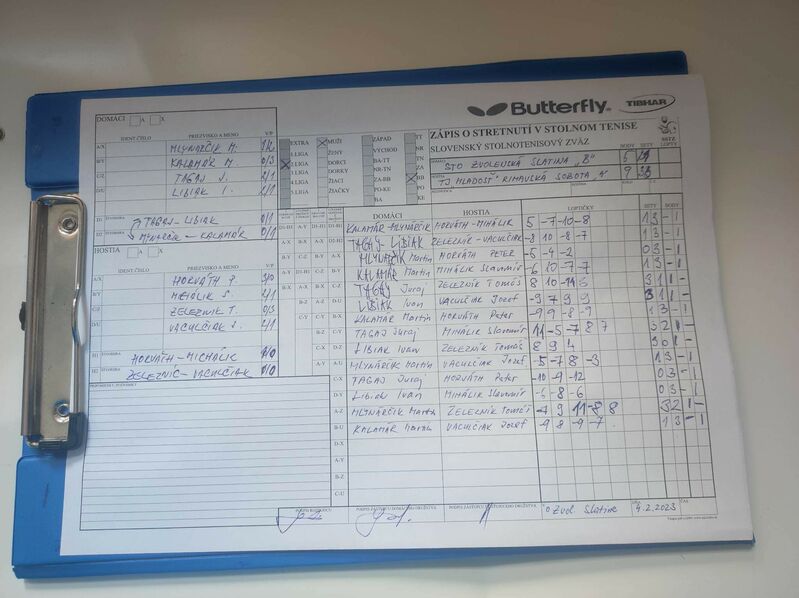 Butterfly
TIBHAR
ZÁPIS O STRETNUTÍ V STOLNOM TENISE
SLOVENSKÝ STOLNOTENISOVÝ ZVÄZ
BODY SETY LOPTY
STO ZVOLENSKÁ SLATINA "B" 5
TJ MLADOSŤ RIMAVSKÁ SOBOTA "A" 9
DOMÁCI A X
IDENT.ČÍSLO PRIEZVISKO A MENO V/P
A/X MLYNÁRČIK M. 1/2
B/Y KALAMÁR M. 0/3
C/Z TAGAJ J. 2/1
D/U LIBIAK I. 2/1
D1 ŠTVORHRA TAGAJ-LIBIAK 0/1
D2 MLYNÁRČIK - KALAMÁR 0/1
HOSTIA A X
IDENT.ČÍSLO PRIEZVISKO A MENO V/P
A/X HORVÁTH P. 3/0
B/Y MIHÁLIK S. 2/1
C/Z ŽELEZNÍK T. 0/3
D/U VACULČIAK J. 2/1
H1 ŠTVORHRA HORVÁTH-MICHÁLIK 1/0
H2 ŽELEZNÍC-VACULČIAK 1/0
EXTRA MUŽI ZÁPAD TT
LIGA ŽENY VÝCHOD NR
LIGA DORCI BA-TT TN
LIGA DORKY NR-TN ZA
LIGA ŽIACI ZA-BB BB
LIGA ŽIAČKY BA-BA PO
KE KE
DOMÁCI HOSTIA LOPTIČKY SETY BODY
KALAMÁR-MLYNÁRČIK HORVÁTH-MIHÁLIK 5 -7 -10 -8 1 3 - 1
TAGAJ LIBIAK ŽELEZNÍK - VACULČIAK -8 10 -8 -7 1 3 - 1
MLYNÁRČIK Martin HORVÁTH PETER -6 -4 -2 0 3 - 1
KALAMÁR Martin MIHÁLIK Slavomír -6 10 -7 -7 1 3 - 1
TAGAJ Juraj ŽELEZNÍK Tomáš 3 1 1 -
LIBIAK Ivan VACULČIAK Jozef -9 7 9 9 3 1 1 -
KALAMÁR Martin HORVÁTH Peter -9 9 -8 -9 1 3 - 1
TAGAJ Juraj MIHÁLIK Slavomír 11 -5 -7 8 7 3 2 1 -
LIBIAK Ivan ŽELEZNÍK Tomáš 8 9 4 3 0 1 -
MLYNÁRČIK Martin VACULČIAK Jozef -5 -7 8 -3 1 3 - 1
TAGAJ Juraj HORVÁTH Peter -10 -9 -12 0 3 - 1
LIBIAK Ivan MIHÁLIK Slavomír -6 -8 -6 0 3 - 1
MLYNÁRČIK Martin ŽELEZNÍK Tomáš 3 2 1 -
KALAMÁR Martin VACULČIAK Jozef -9 8 -9 -7 1 3 - 1
PODPIS ROZHODCU
PODPIS ZÁSTUPCU DOMÁCEHO DRUŽSTVA
PODPIS ZÁSTUPCU HOSŤUJÚCEHO DRUŽSTVA
Zvol. Slatine
DŇA 4.2.2023
ČAS